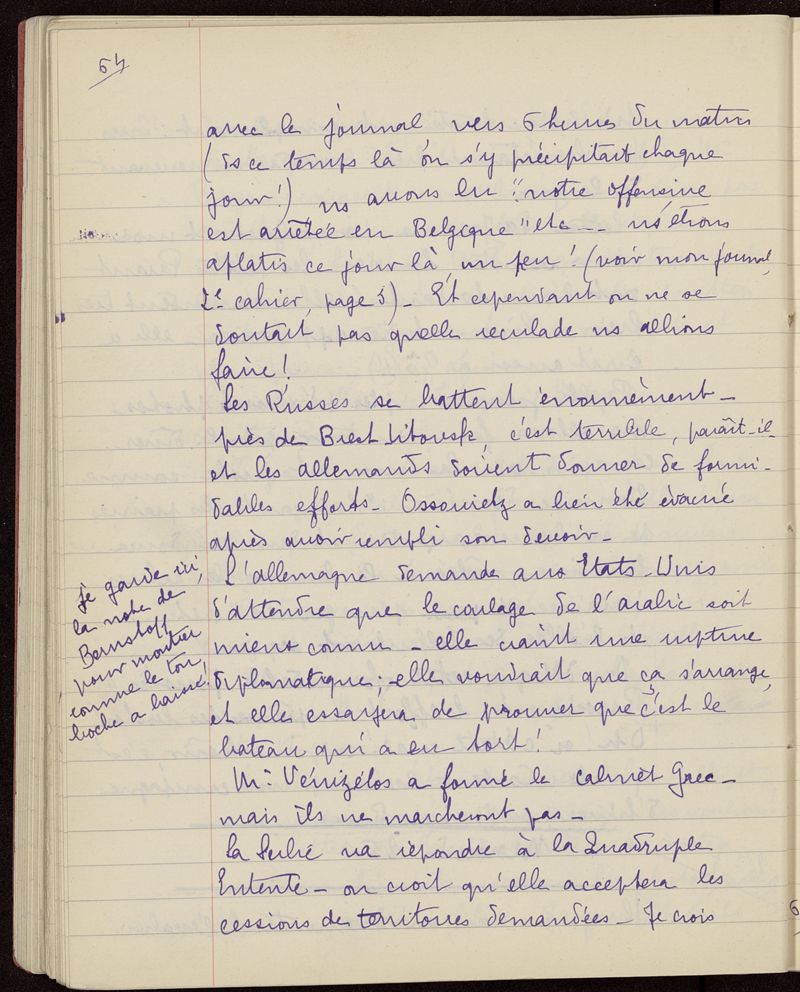 64
avec le journal vers 6 heures du matin
(ds ce temps là on s'y précipitait chaque
jour!) ns avons lu "notre offensive
est arrêtée en Belgique" etc -- ns étions
aplatis ce jour là, un peu! (voir mon journal,
2e cahier, page 5) - Et cependant on ne se
doutait pas quelle reculade ns allions
faire!
Les Russes se battent énormément -
près de Brest Litovsk, c'est terrible, paraît-il -
et les allemands doivent donner de formi-
dables efforts - Ossowietz a bien été évacué
après avoir rempli son devoir -
L'allemagne demande aux Etats-Unis
d'attendre que le coulage de l'arabic soit
mieux connu - elle craint une rupture
diplomatique; elle voudrait que ça s'arrange,
et elle essaiera de prouver que c'est le
bateau qui a eu tort!
Mr Vénizélos a formé le cabinet Grec -
mais ils ne marcheront pas -
La Serbie va répondre à la Quadruple
Entente - on croit qu'elle acceptera les
cessions de territoires demandées - Je crois
je garde ici,
la note de
Bernstoff
pour montrer
comme le ton
boche a baissé!